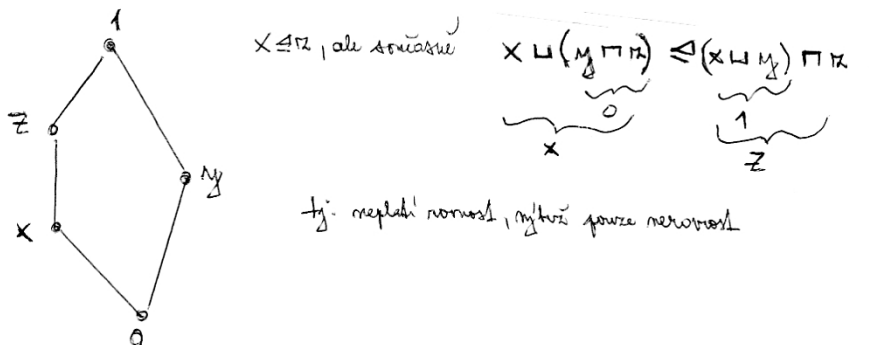 1
x ⊴ z, ale současně x ⊔ (y ⊓ z) ⊴ (x ⊔ y) ⊓ z
0 1
x z
z
y
x
tj. neplatí rovnost, nýbrž pouze nerovnost
0